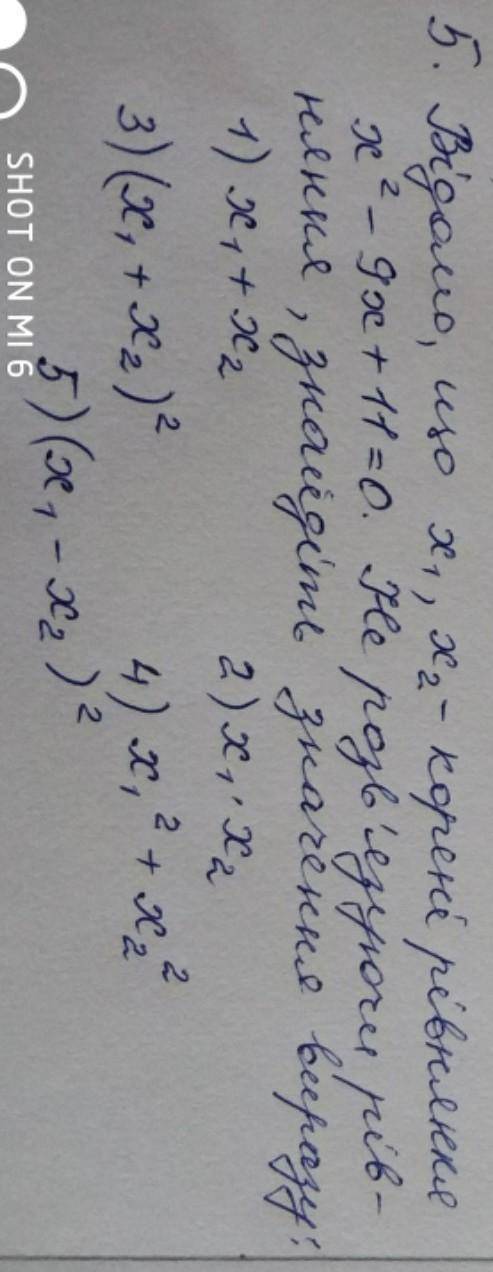 5. Відомо, що x₁, x₂ - корені рівняння
x² - 9x + 11 = 0. Не розв'язуючи рів-
няння, знайдіть значення виразу:
1) x₁ + x₂ 2) x₁ · x₂
3) (x₁ + x₂)² 4) x₁² + x₂²
5) (x₁ - x₂)²
SHOT ON MI 6